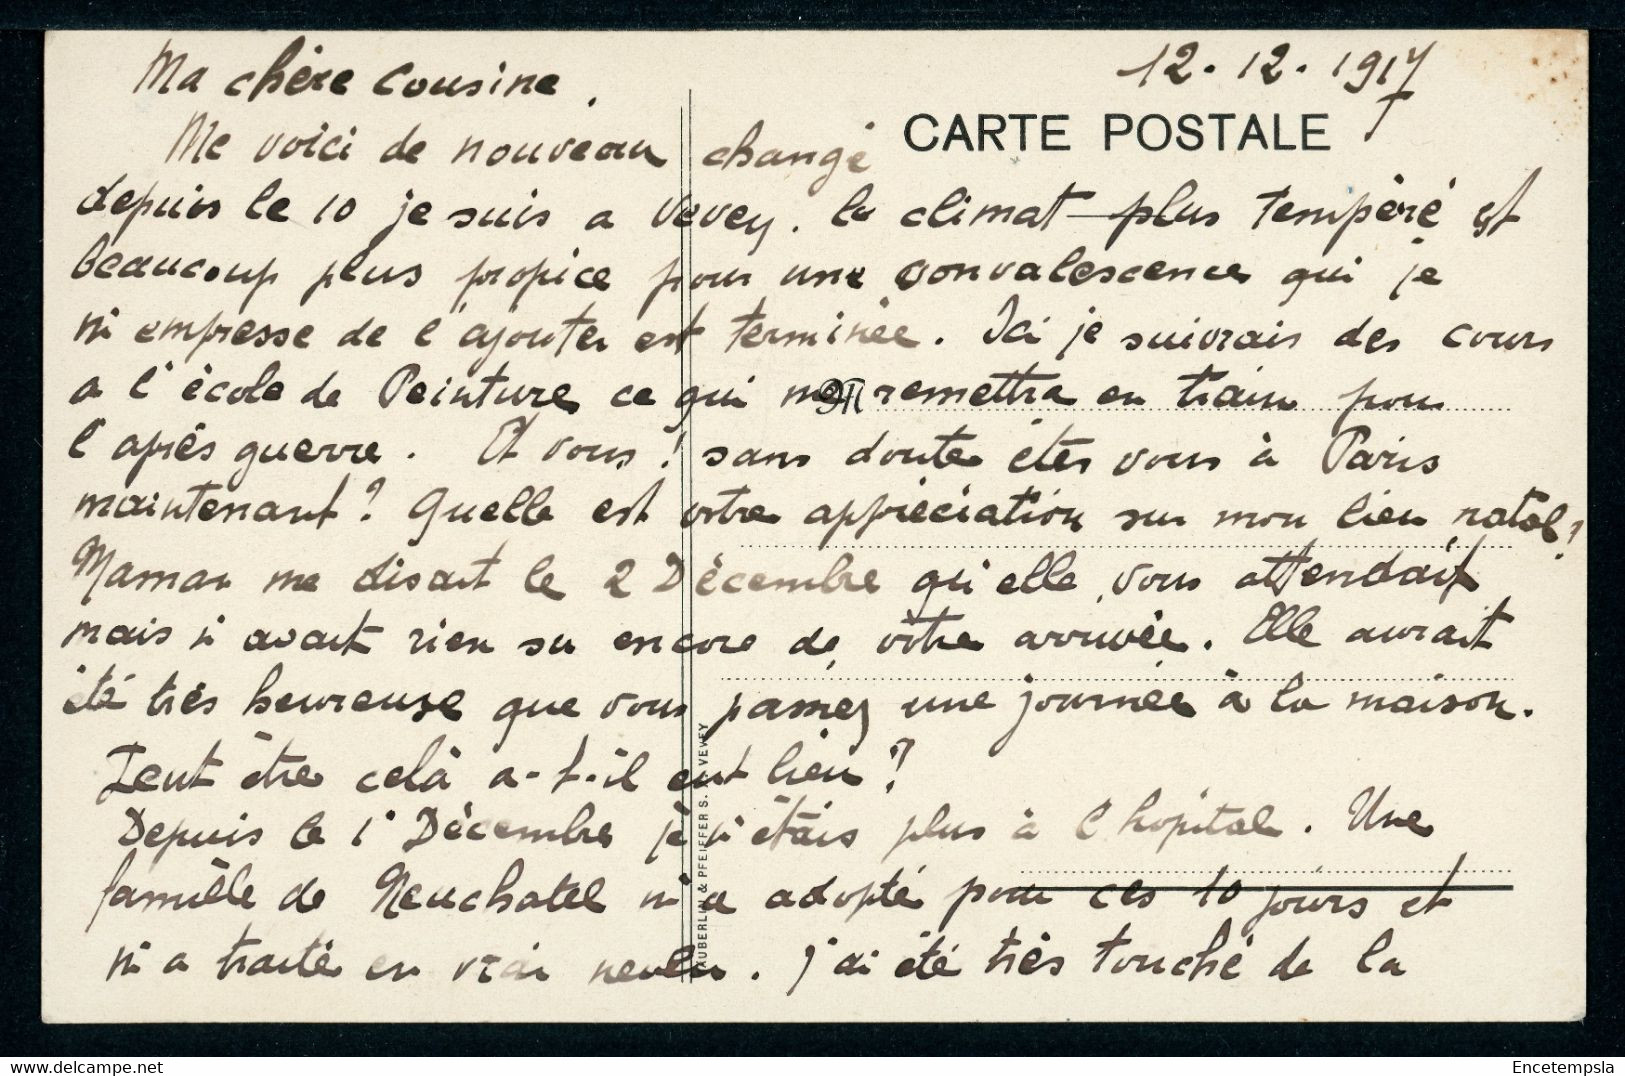 12.12.1917
CARTE POSTALE
Ma chère Cousine.
Me voici de nouveau changé
depuis le 10 je suis a Vevey. le climat plus tempéré est
beaucoup plus propice pour une convalescence qui je
m'empresse de l'ajouter est terminée. Ici je suivrais des cours
a l'école de Peinture ce qui me remettra en train pour
l'après guerre. Et vous! sans doute êtes vous à Paris
maintenant? Quelle est votre appréciation sur mon lieu natal?
Maman me disait le 2 Décembre qu'elle vous attendait
mais n'avait rien su encore de vôtre arrivée. Elle aurait
été très heureuse que vous passiez une journée à la maison.
Peut être celà a-t-il eut lieu?
Depuis le 1° Décembre je n'étais plus à l'hôpital. Une
famille de Neuchatel m'a adopté pour ces 10 jours et
m'a traité en vrai neveu. J'ai été très touché de la
& PFEIFFER S. VEVEY
Encetempsla
https://www.delcampe.net